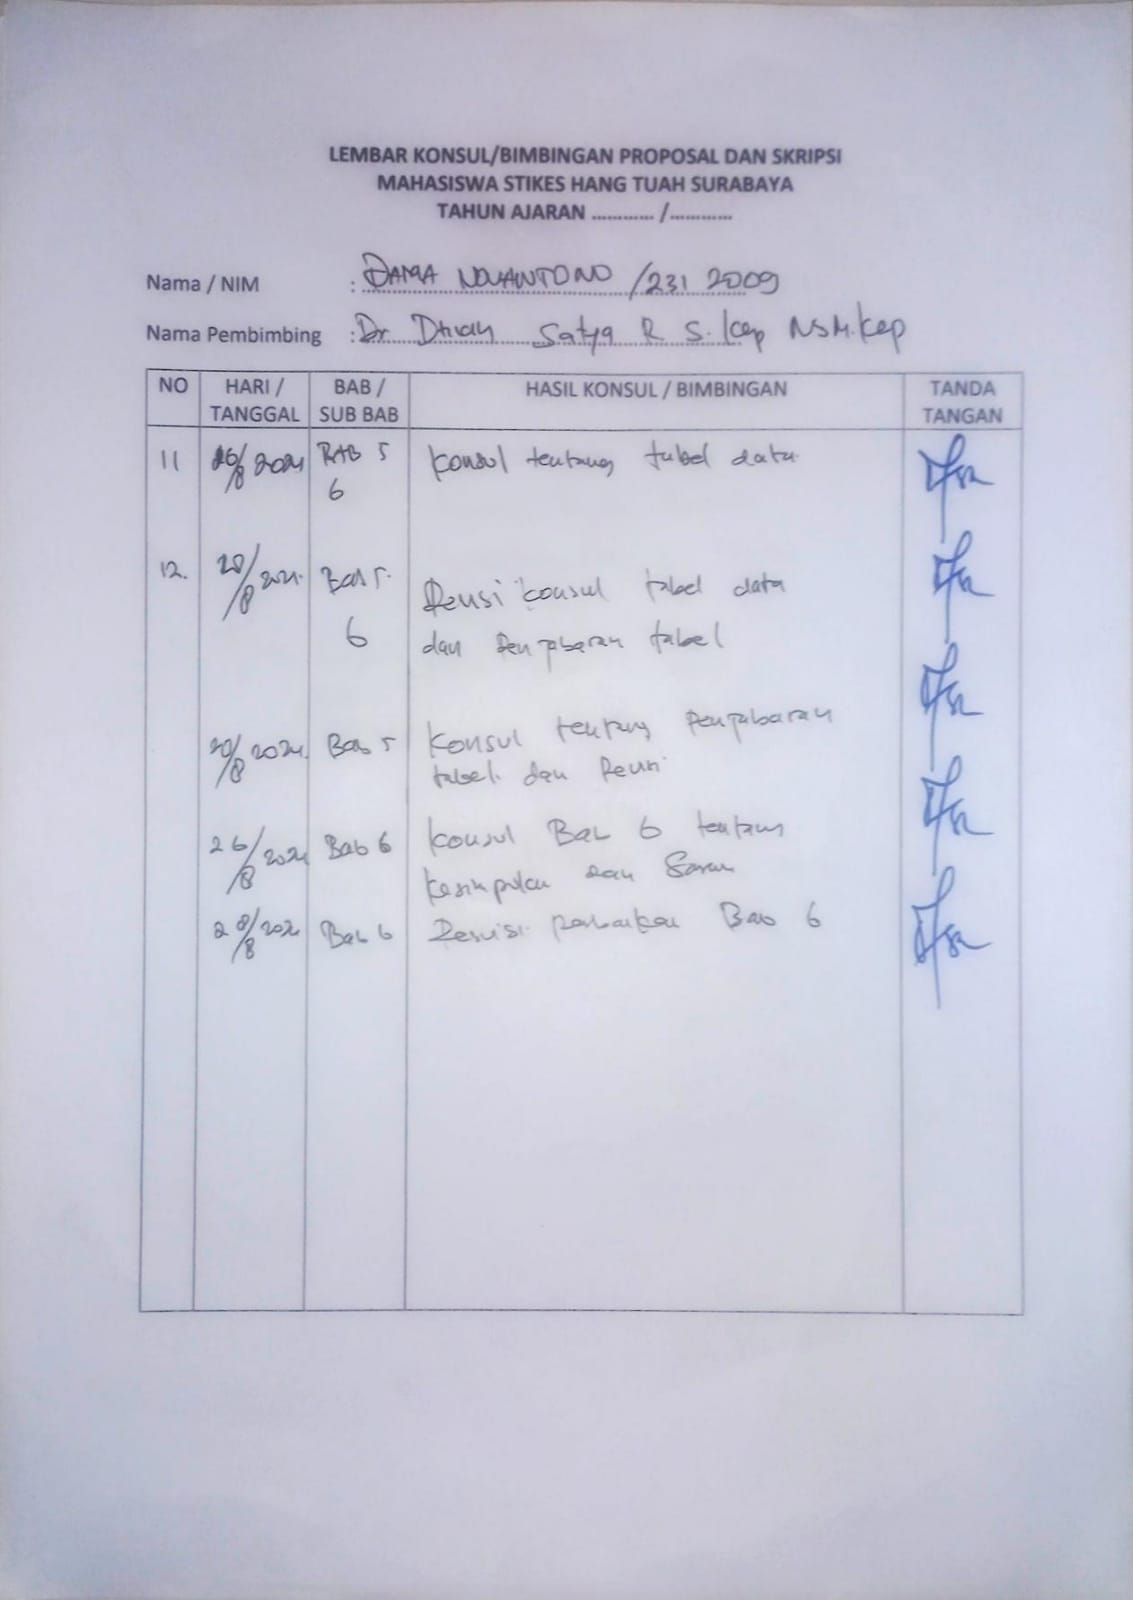 LEMBAR KONSUL/BIMBINGAN PROPOSAL DAN SKRIPSI
MAHASISWA STIKES HANG TUAH SURABAYA
TAHUN AJARAN ............ /............
Nama / NIM : DAMA NOVANTONO /231 2009
Nama Pembimbing : Dr. Dhian Satya R S.Kep Ns M.Kep
NO HARI / TANGGAL BAB / SUB BAB HASIL KONSUL / BIMBINGAN TANDA TANGAN
11 /8 BAB 5 Konsul tentang tabel data
6
12. 20/8 Bab 5. Revisi konsul tabel data
6 dan Penjabaran tabel
20/8 Bab 5 Konsul tentang Penjabaran
tabel dan Revisi
26/8 Bab 6 Konsul Bab 6 tentang
Kesimpulan dan Saran
28/8 Bab 6 Revisi perbaikan Bab 6